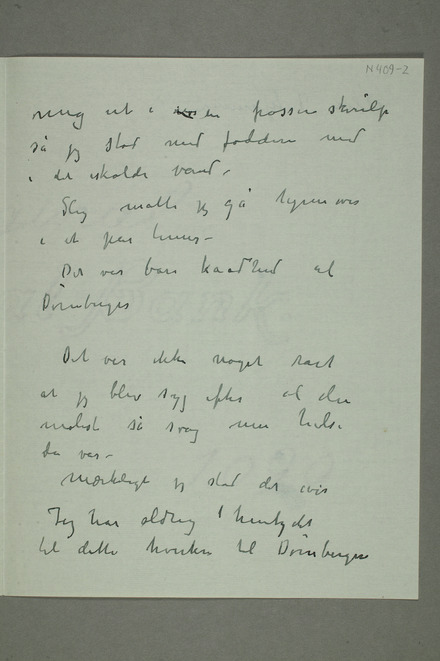 N 409-2
mig ut i en fossen skvulp
så jeg stod med føddern ned
i det iskolde vand –
Slig måtte jeg gå hjemover
i et par timer –
Det var bare kaadhed al
Dørnberger
Det var ikke noget rart
at jeg blev syg efter al den
målet så svag min helse
da var –
Mærkeligt jeg stod det over
Jeg har aldrig hentydet
til dette hverken til Dørnberger